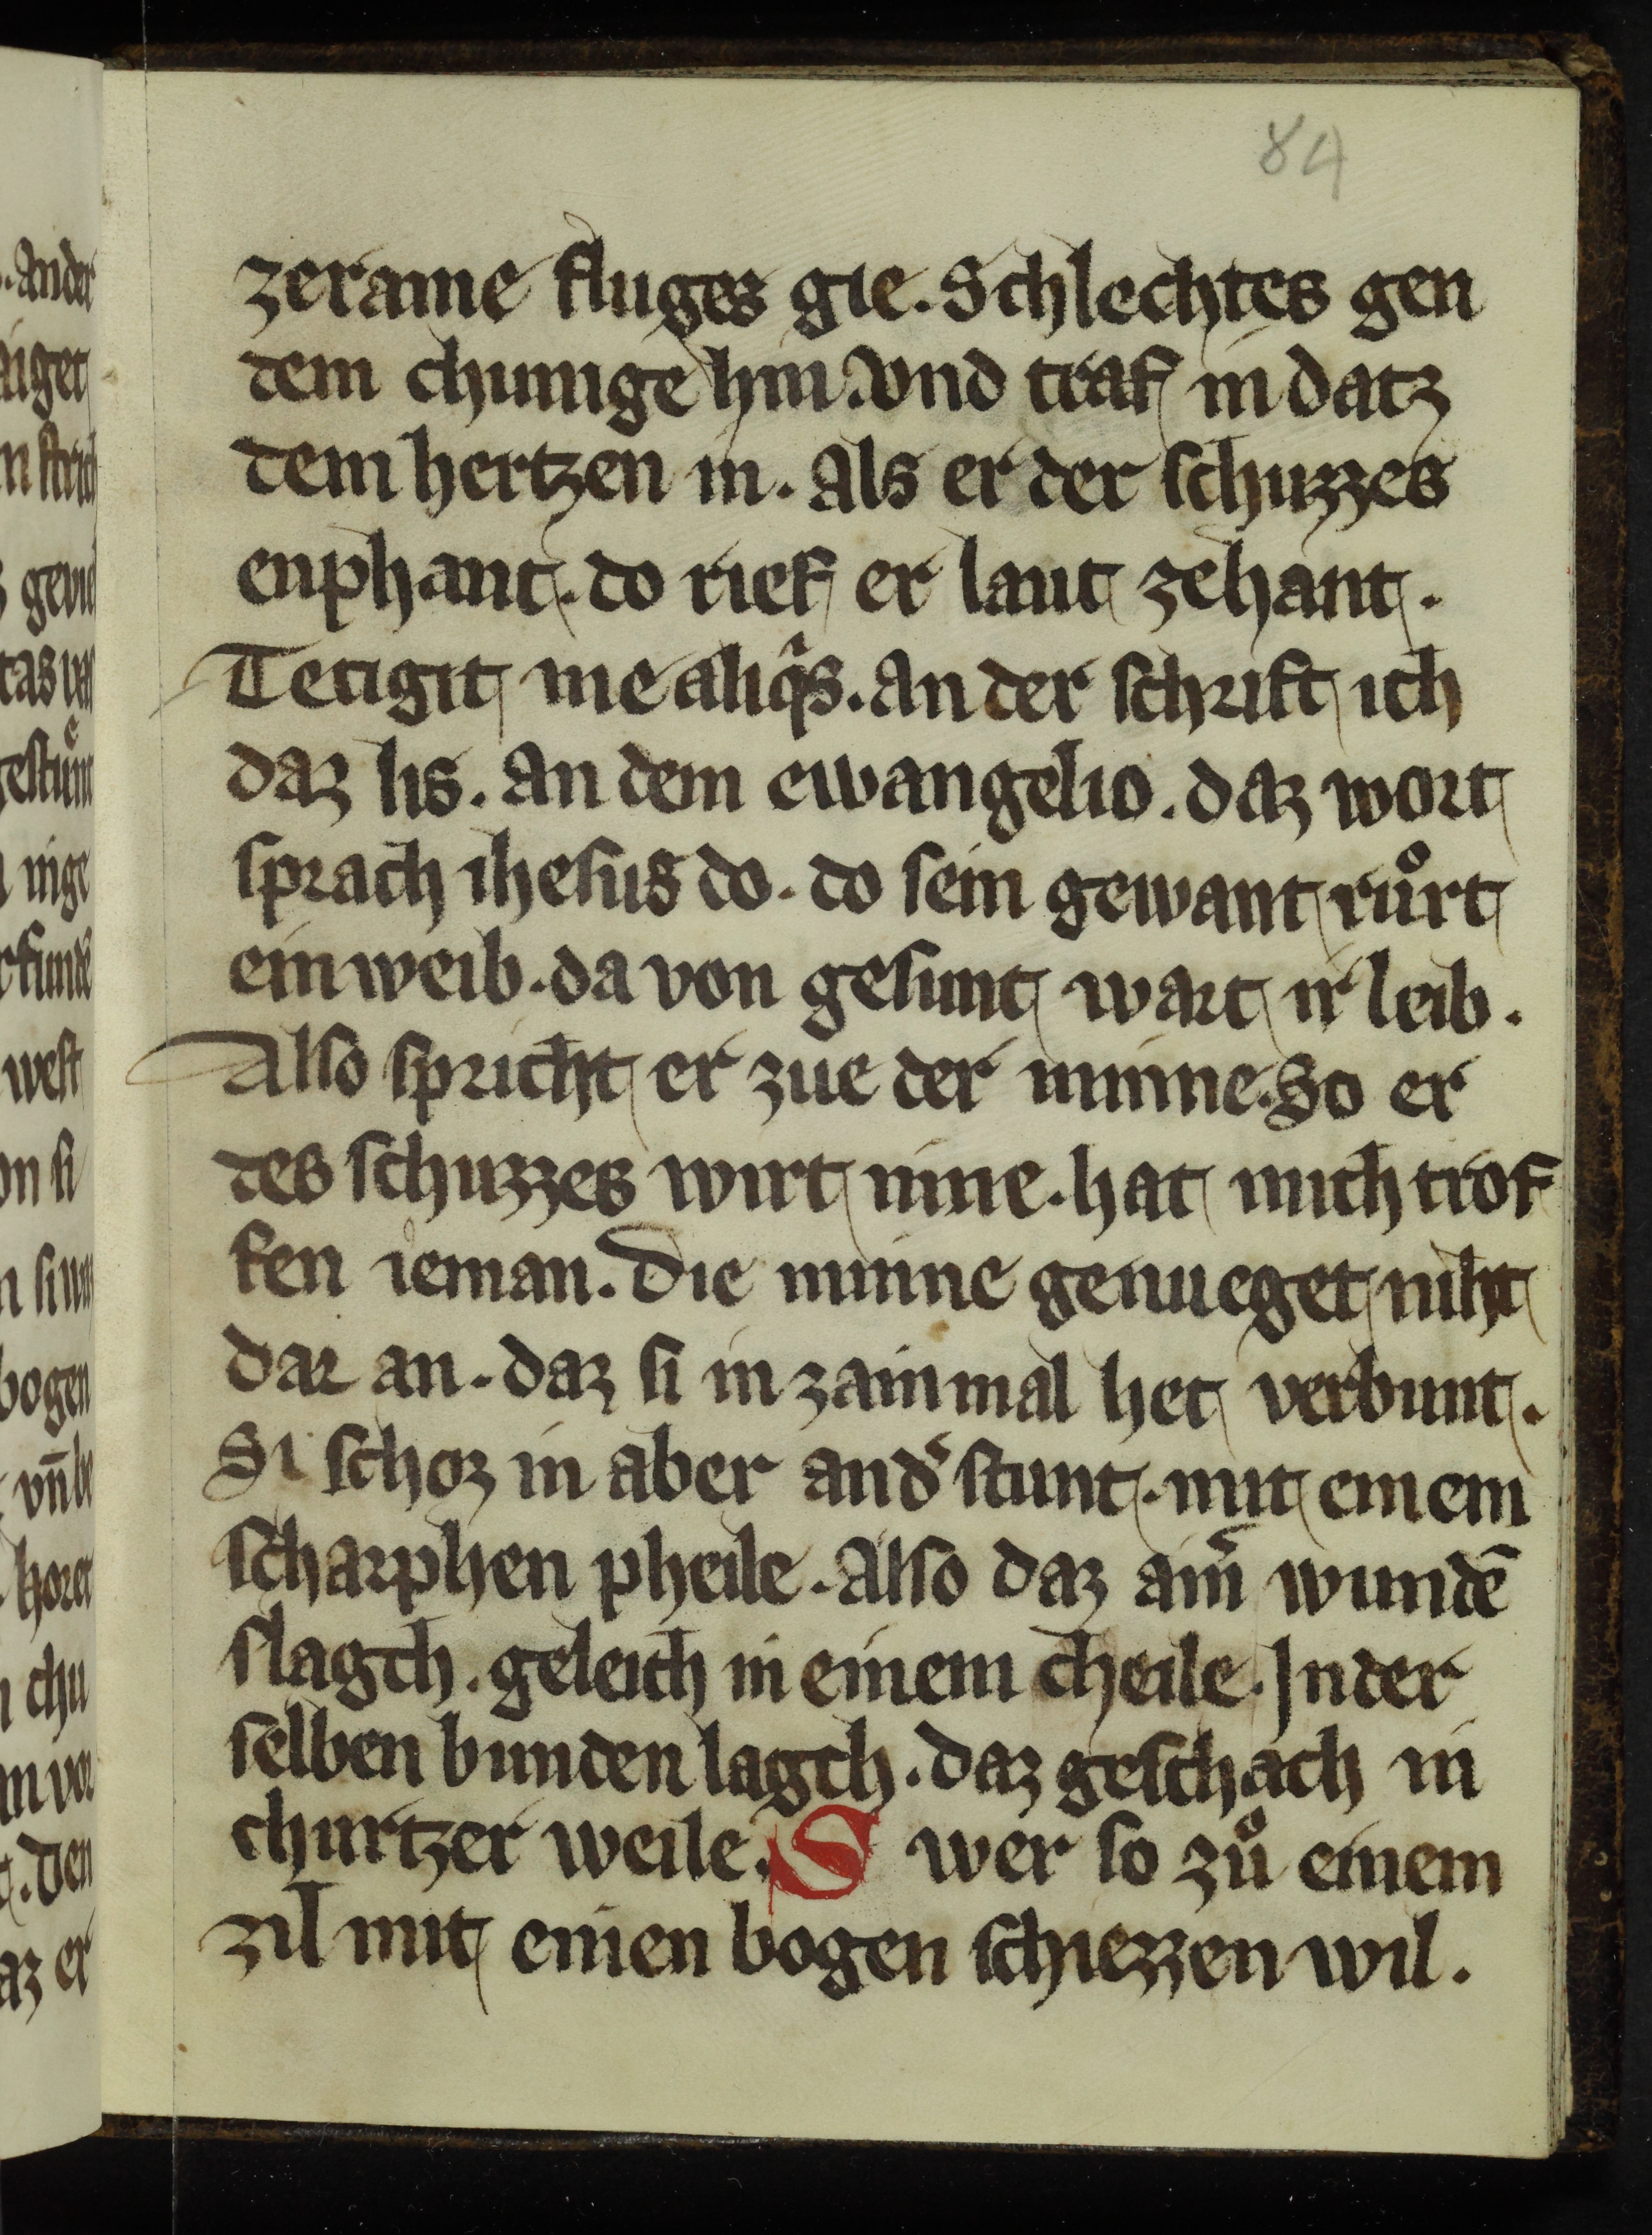 84
zerame fluges gie. Schlechtes gen
dem chunige hin. Vnd traf in datz
dem hertzen in. Als er der schuzzes
enphant. do rief er laut zehant.
Tetigit me aliq̅s. An der schrift ich
daz lis. An dem ewangelio. daz wort
sprach ihesus do. do sein gewant růrt
ein weib. da von gesunt wart ir leib.
Also spricht er zue der minne. So er
des schuzzes wirt inne. hat mich trof
fen ieman. Die minne genueget niht
dar an. daz si in zainmal het verbunt.
Si schoz in aber and͛ stunt. mit einem
scharphen pheile. Also daz ain͛ wundē
slagch. geleich in einem cheile. In der
selben bunden lagch. daz geschach in
churtzer weile. S wer so zů einem
zil mit einen bogen schiezzen wil.